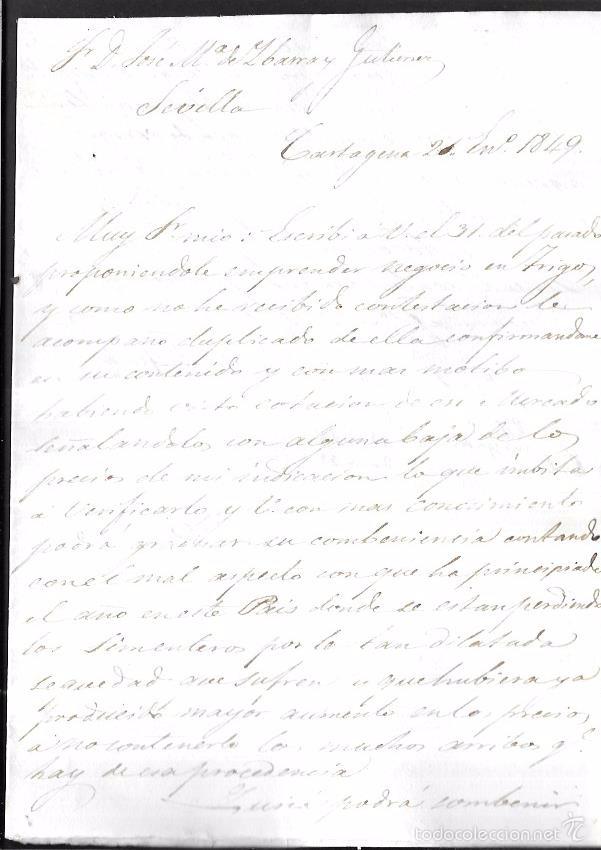 Sr. D. José Ma. de Ybarra y Gutierrez
Sevilla
Cartagena 21. Eno. 1849.
Muy Sr. mio: Escribi á V. el 31. del pasado
proponiendole emprender negocio en Trigos,
y como no he recibido contestacion le
acompaño duplicado de ella confirmandome
en su contenido y con mas motibo
habiendo visto cotacion de ese Mercado
señalandolos con alguna baja de los
precios de mi indicacion lo que imbita
á verificarlo y V. con mas conocimiento
podrá graduar su combeniencia contando
con el mal aspecto con que ha principiado
el año en este Pais donde se estan perdiendo
los Simenteros por la tan dilatada
sequedad que sufren y que hubiera ya
producido mayor aumento en los precios,
á no contenerlo los muchos arribos q.
hay de esa procedencia
Quisá podrá combenir
todocoleccion.net